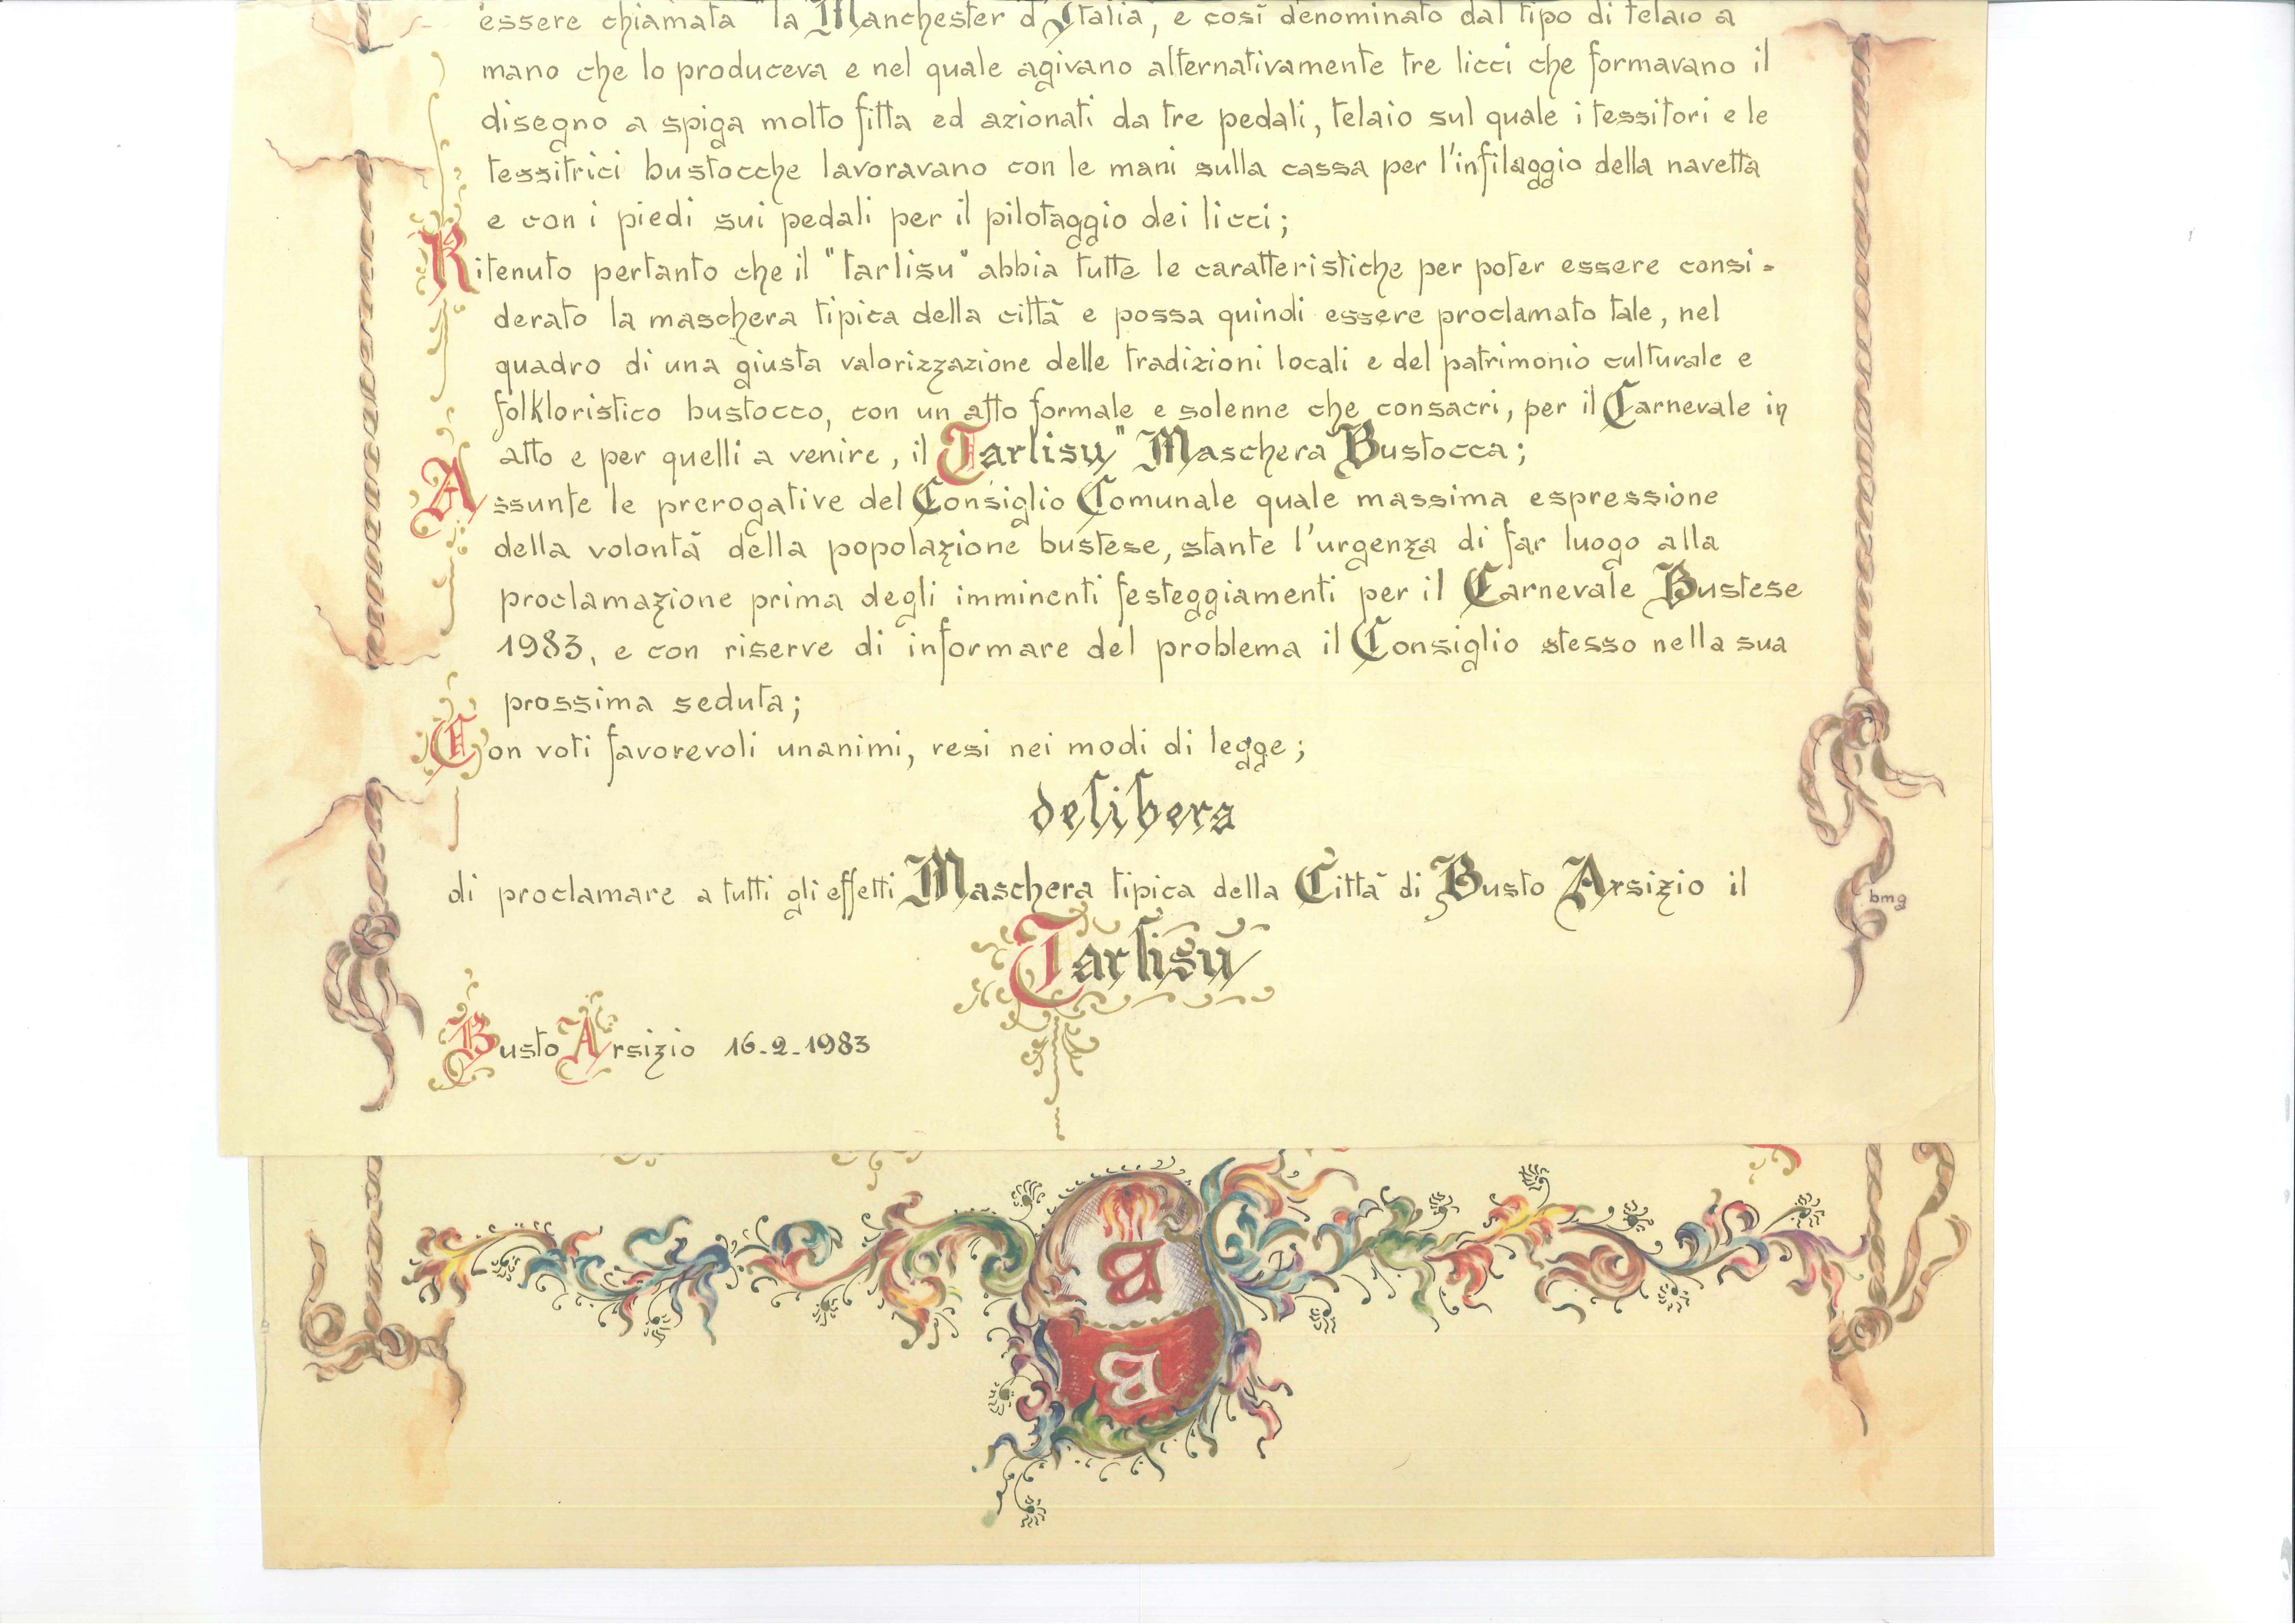 essere chiamata "la Manchester d'Italia, e così denominato dal tipo di telaio a
mano che lo produceva e nel quale agivano alternativamente tre licci che formavano il
disegno a spiga molto fitta ed azionati da tre pedali, telaio sul quale i tessitori e le
tessitrici bustocche lavoravano con le mani sulla cassa per l'infilaggio della navetta
e con i piedi sui pedali per il pilotaggio dei licci;
Ritenuto pertanto che il "tarlisu" abbia tutte le caratteristiche per poter essere consi-
derato la maschera tipica della città e possa quindi essere proclamato tale, nel
quadro di una giusta valorizzazione delle tradizioni locali e del patrimonio culturale e
folkloristico bustocco, con un atto formale e solenne che consacri, per il Carnevale in
atto e per quelli a venire, il Tarlisu" Maschera Bustocca;
Assunte le prerogative del Consiglio Comunale quale massima espressione
della volontà della popolazione bustese, stante l'urgenza di far luogo alla
proclamazione prima degli imminenti festeggiamenti per il Carnevale Bustese
1983, e con riserve di informare del problema il Consiglio stesso nella sua
prossima seduta;
Con voti favorevoli unanimi, resi nei modi di legge;
delibera
di proclamare a tutti gli effetti Maschera tipica della Città di Busto Arsizio il
bmg
Tarlisu
Busto Arsizio 16-2-1983
B
B